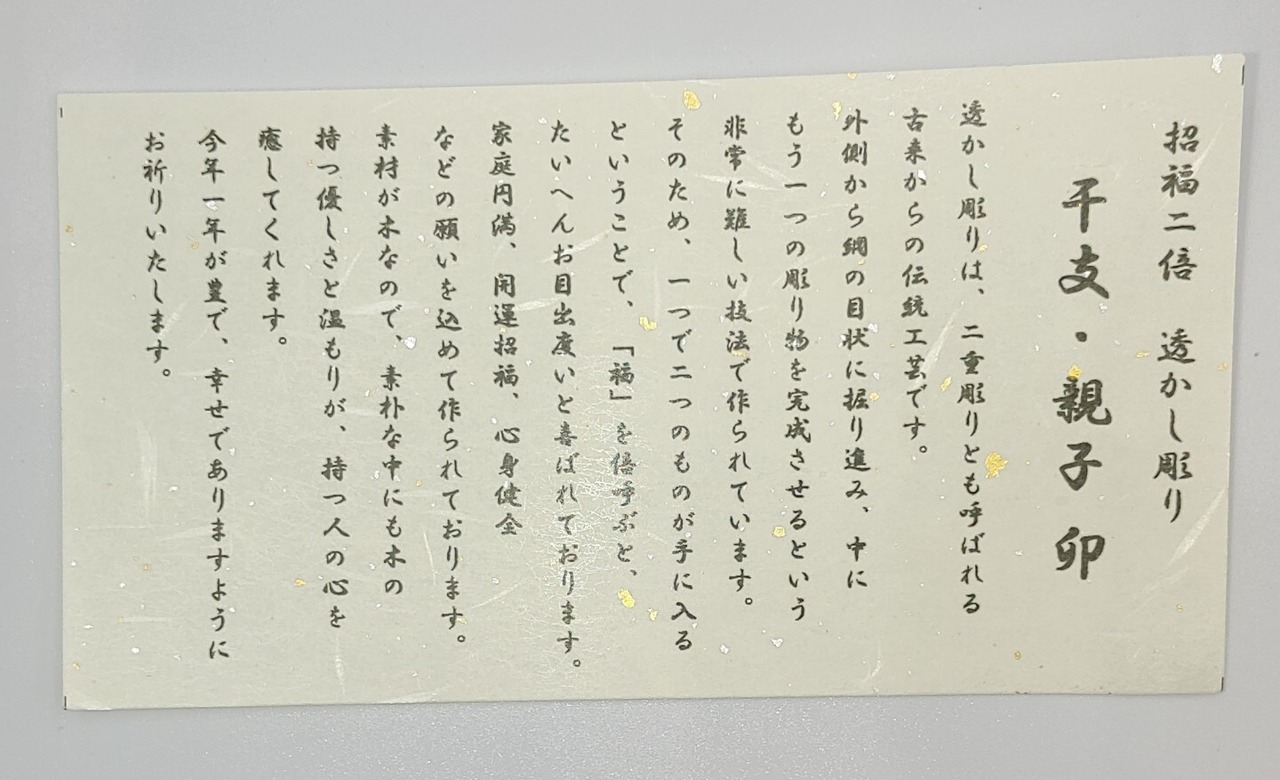 招福二倍　透かし彫り
干支・親子 卯
透かし彫りは、二重彫りとも呼ばれる
古来からの伝統工芸です。
外側から網の目状に掘り進み、中に
もう一つの彫り物を完成させるという
非常に難しい技法で作られています。
そのため、一つで二つのものが手に入る
ということで、「福」を倍呼ぶと、
たいへんお目出度いと喜ばれております。
家庭円満、開運招福、心身健全
などの願いを込めて作られております。
素材が木なので、素朴な中にも木の
持つ優しさと温もりが、持つ人の心を
癒してくれます。
今年一年が豊で、幸せでありますように
お祈りいたします。